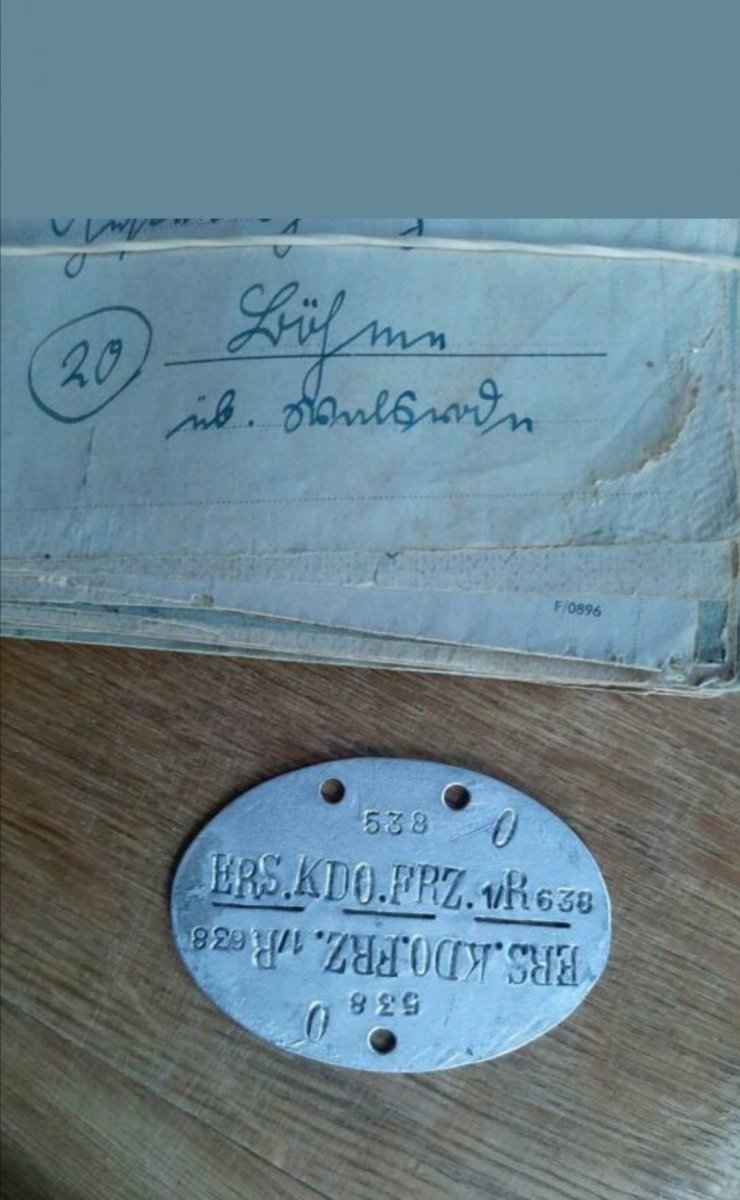 20
Böhme
üb. Walsrode
F/0896
538 O
ERS.KDO.FRZ. 1/R 638
ERS.KDO.FRZ. 1/R 638
538 O